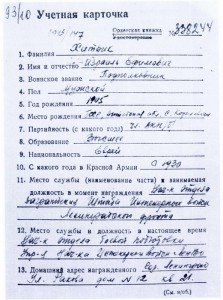 Учетная карточка
Орденская книжка
Удостоверение
338244
1. Фамилия Хитник
2. Имя и отчество Израиль Ефимович
3. Воинское звание Подполковник
4. Пол Мужской
5. Год рождения 1905
6. Место рождения
7. Партийность (с какого года) чл. ВКП/б
8. Образование Высшее
9. Национальность Еврей
10. С какого года в Красной Армии С 1930
11. Место службы (наименование части) и занимаемая
должность в момент награждения Нач-к отдела
Штаба Инженерных войск
Ленинградского фронта
12. Место службы и должность в настоящее время
Нач-к отдела Боевой подготовки
Упр-я Нач-ка Инженерных войск
13. Домашний адрес награжденного Гор. Ленинград
ул. дом № 12 кв 21.
(См. н/об.)